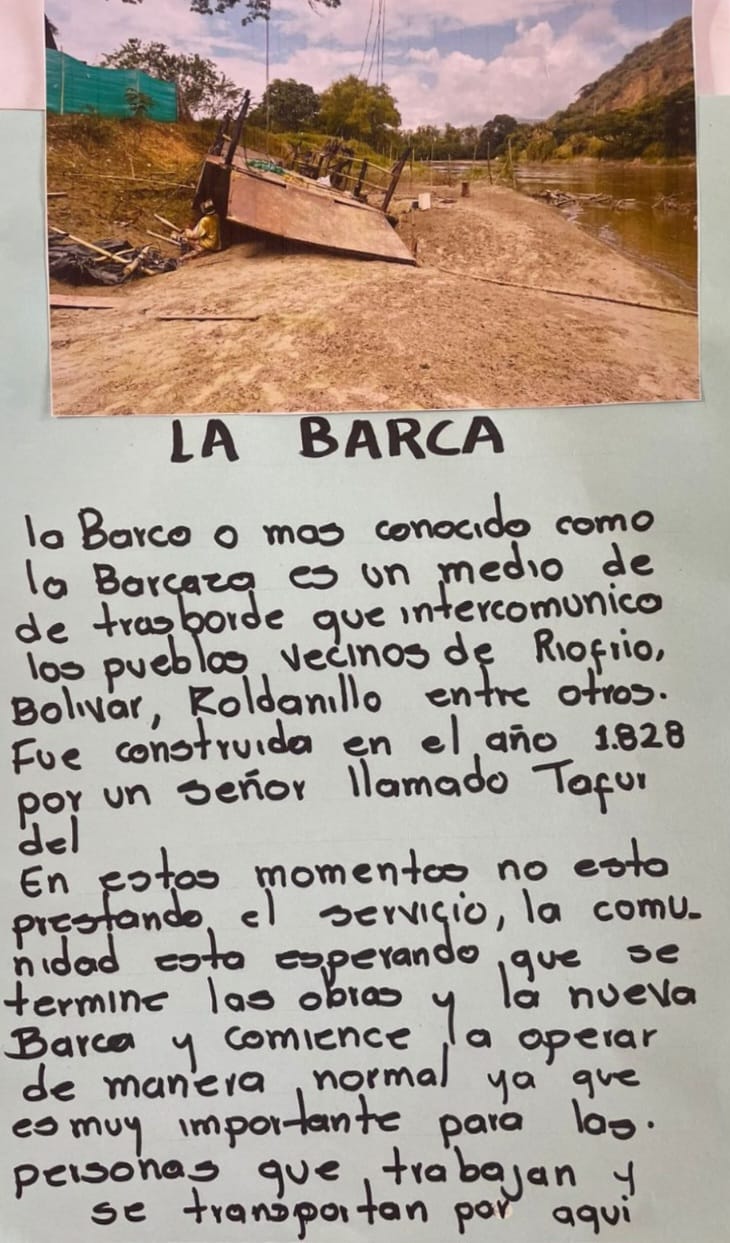 LA BARCA
la Barca o mas conocido como
la Barcaza es un medio de
de trasborde que intercomunica
los pueblos vecinos de Riofrio,
Bolivar, Roldanillo entre otros.
Fue construida en el año 1.828
por un señor llamado Tafur
del
En estos momentos no esta
prestando el servicio, la comu-
nidad esta esperando que se
termine las obras y la nueva
Barca y comience a operar
de manera normal ya que
es muy importante para las.
personas que trabajan y
se transportan por aqui